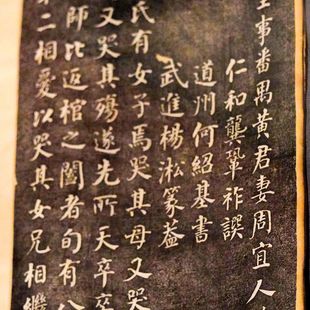 主事番禺黃君妻周宜人
仁和龔鞏祚譔
道州何紹基書
武進楊淞篆蓋
氏有女子焉哭其母又哭
又哭其殤遂先所天卒卒
師比返棺之闔者旬有八
二相愛以哭其女兄相繼